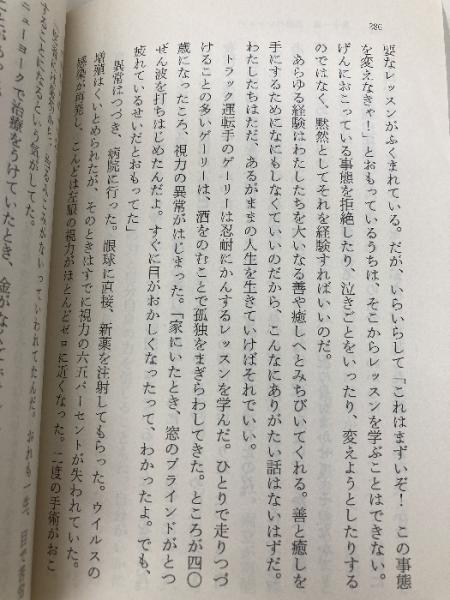 286
要なレッスンがふくまれている。だが、いらいらして「これはまずいぞ！　この事態
を変えなきゃ！」とおもっているうちは、そこからレッスンを学ぶことはできない。
げんにおこっている事態を拒絶したり、泣きごとをいったり、変えようとしたりする
のではなく、黙然としてそれを経験すればいいのだ。
あらゆる経験はわたしたちを大いなる善や癒しへとみちびいてくれる。善と癒しを
手にするためになにもしなくていいのだから、こんなにありがたい話はないはずだ。
わたしたちはただ、あるがままの人生を生きていけばそれでいい。
トラック運転手のゲーリーは忍耐にかんするレッスンを学んだ。ひとりで走りつづ
けることの多いゲーリーは、酒をのむことで孤独をまぎらわしてきた。ところが四〇
歳になったころ、視力の異常がはじまった。「家にいたとき、窓のブラインドがとつ
ぜん波を打ちはじめたんだよ。すぐに目がおかしくなったって、わかったよ。でも、
疲れているせいだとおもってた」
異常はつづき、病院に行った。眼球に直接、新薬を注射してもらった。ウイルスの
増殖はくいとめられたが、そのときはすでに視力の六五パーセントが失われていた。
感染が再発し、こんどは左眼の視力がほとんどゼロに近くなった。二度の手術がおこ
ニューヨークで治療をうけていたとき、金がなくて